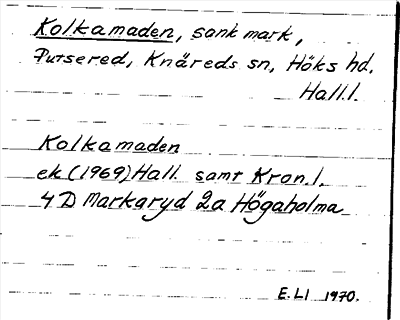 Kolkamaden, sank mark,
Putsered, Knäreds sn, Höks hd.
Hall.l.
Kolkamaden
ek (1969) Hall. samt Kron.l.
4 D Markaryd 2a Högaholma
E.LI 1970.